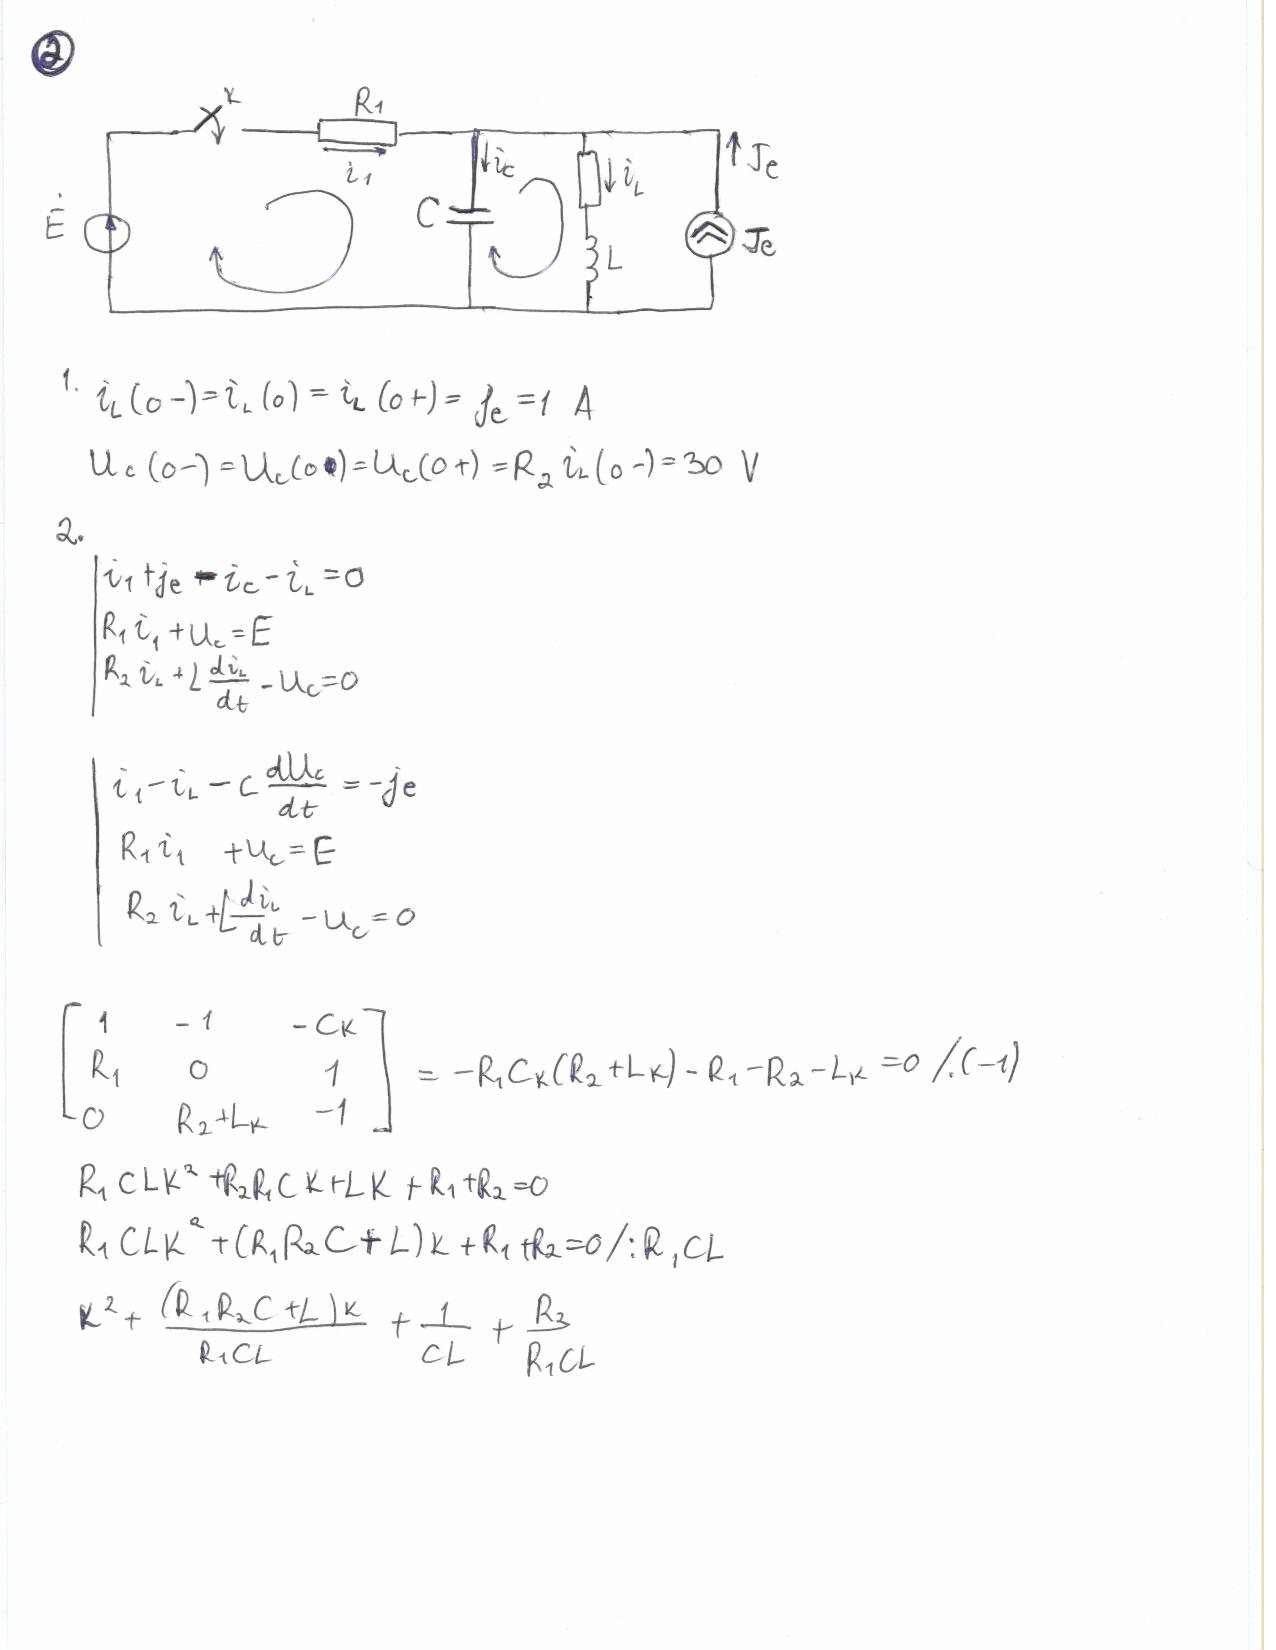 2
K
R₁
i₁
Ė
C
i_c
i_L
L
J_e
J_e
1. i_L(0-)=i_L(0)=i_L(0+)=j_e=1 A
U_c(0-)=U_c(0)=U_c(0+)=R₂ i_L(0-)=30 V
2.
i₁+j_e-i_c-i_L=0
R₁i₁+U_c=E
R₂i_L+L di_L/dt-U_c=0
i₁-i_L-C dU_c/dt=-j_e
R₁i₁ +U_c=E
R₂i_L+L di_L/dt-U_c=0
1 -1 -CK
R₁ 0 1 = -R₁CK(R₂+LK)-R₁-R₂-LK=0 /.(-1)
0 R₂+LK -1
R₁CLK²+R₂R₁CK+LK+R₁+R₂=0
R₁CLK²+(R₁R₂C+L)K+R₁+R₂=0/:R₁CL
K²+(R₁R₂C+L)K/R₁CL+1/CL+R₂/R₁CL